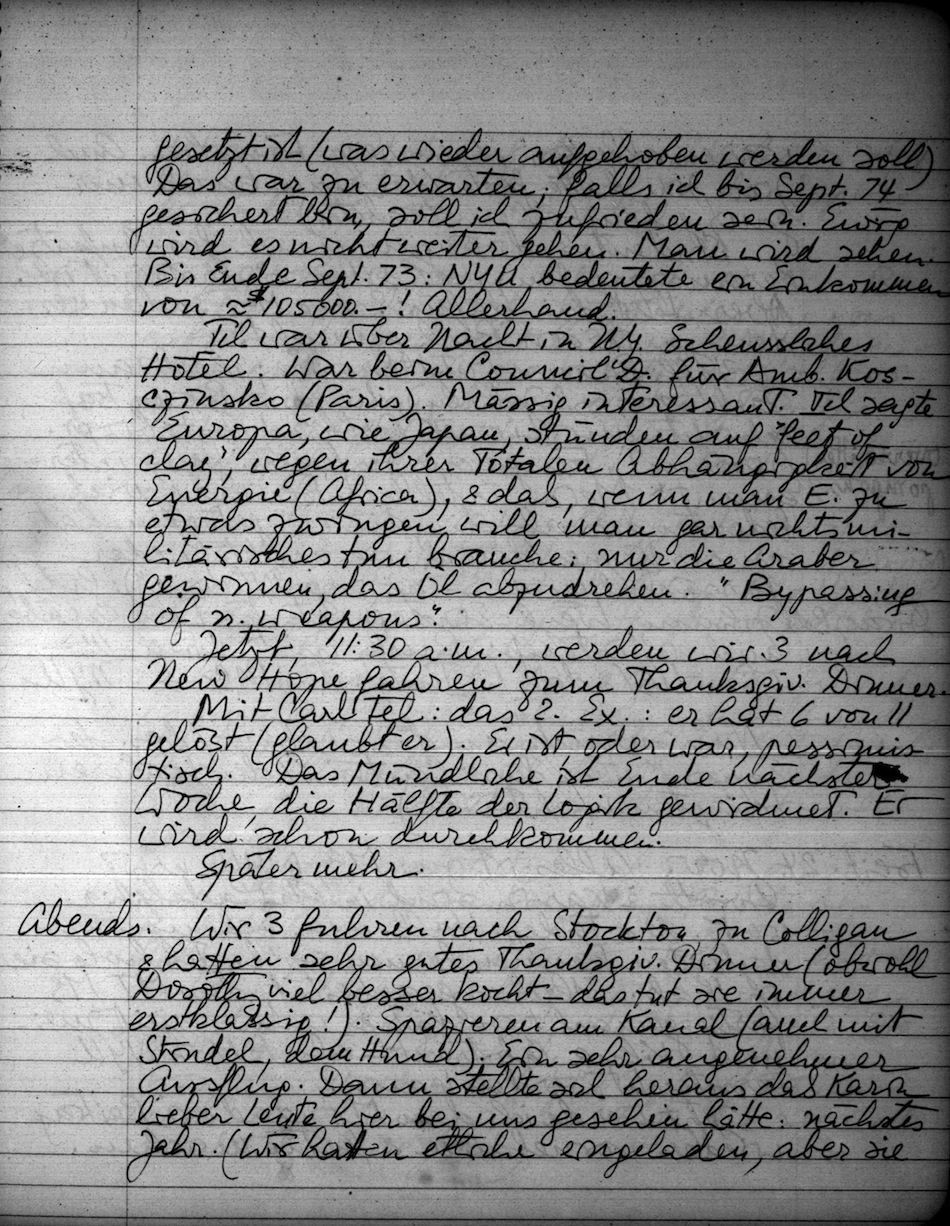 gesetzt ist (was wieder aufgehoben werden soll)
Das war zu erwarten; falls ich bis Sept. 74
gesichert bin, soll ich zufrieden sein. Ewig
wird es nicht weiter gehen. Man wird sehen.
Bis Ende Sept. 73: NYU bedeutete ein Einkommen
von ≈ $105000.–! Allerhand.
war über Nacht in NY. Scheussliches
Hotel. War beim Council D. für Amb. Kos-
czinsko (Paris). Mässig interessant. sagte
Europa, wie Japan, stünden auf "feet of
clay", wegen ihrer Totalen Abhängigkeit von
Energie (Africa), & das, wenn man E. zu
etwas zwingen will man gar nichts mi-
litärisches tun brauche; nur die Araber
gewinnen, das Öl abzudrehen. "Bypassing
of n. weapons".
Jetzt, 11:30 a.m., werden wir 3 nach
New Hope fahren zum Thanksgiv. Dinner.
Mit Carl Tel: das 2. Ex.: er hat 6 von 11
gelöst (glaubt er). Er ist oder war, pessimis-
tisch. Das Mündliche ist Ende nächster
Woche, die Hälfte der Logik gewidmet. Er
wird schon durchkommen.
Später mehr.
Abends. Wir 3 fuhren nach Stockton zu Colligan
& hatten sehr gutes Thanksgiv. Dinner (obwohl
Dorothy viel besser kocht – das tut sie immer
erstklassig!). Spazieren am Kanal (auch mit
dem Hund). Ein sehr angenehmer
Ausflug. Dann stellte sich heraus das Karin
lieber Leute hier bei uns gesehen hätte: nächstes
Jahr. (Wir hatten etliche eingeladen, aber sie